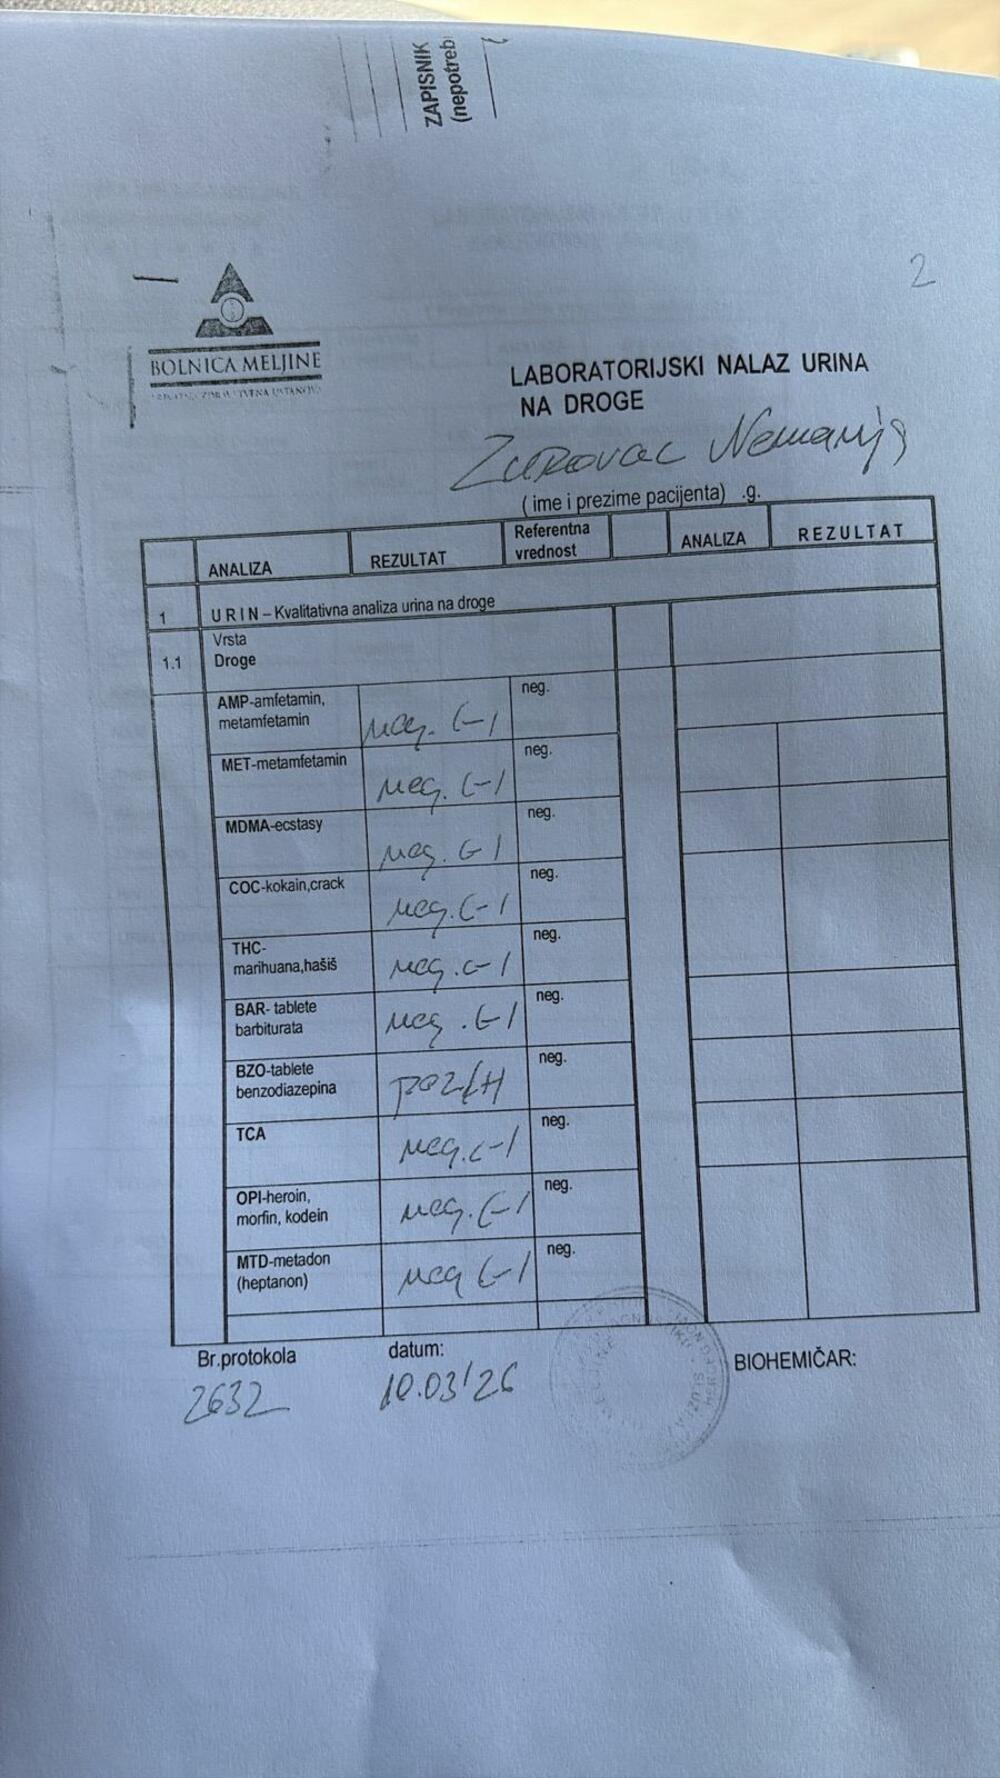 ZAPISNIK
(nepotreb
2
BOLNICA MELJINE
LABORATORIJSKI NALAZ URINA
NA DROGE
Zurovac Nemanja
( ime i prezime pacijenta) .g.
ANALIZA REZULTAT Referentna vrednost ANALIZA REZULTAT
1 URIN – Kvalitativna analiza urina na droge
1.1 Vrsta
Droge
AMP-amfetamin, metamfetamin neg. (-) neg.
MET-metamfetamin neg. (-) neg.
MDMA-ecstasy neg. (-) neg.
COC-kokain,crack neg. (-) neg.
THC- marihuana,hašiš neg. (-) neg.
BAR- tablete barbiturata neg. (-) neg.
BZO-tablete benzodiazepina poz(+) neg.
TCA neg. (-) neg.
OPI-heroin, morfin, kodein neg. (-) neg.
MTD-metadon (heptanon) neg (-) neg.
Br.protokola datum: BIOHEMIČAR:
2632 10.03/26